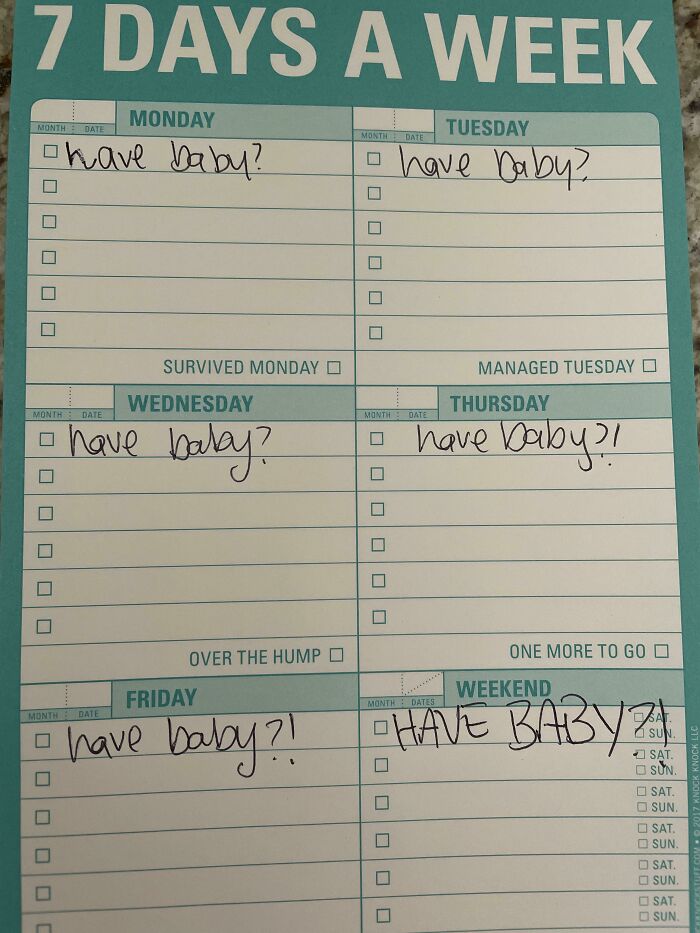 7 DAYS A WEEK
MONTH DATE MONDAY
have baby?
SURVIVED MONDAY
MONTH DATE TUESDAY
have baby?
MANAGED TUESDAY
MONTH DATE WEDNESDAY
have baby?
OVER THE HUMP
MONTH DATE THURSDAY
have baby?!
ONE MORE TO GO
MONTH DATE FRIDAY
have baby?!
MONTH DATES WEEKEND
HAVE BABY?!
SAT.
SUN.
SAT.
SUN.
SAT.
SUN.
SAT.
SUN.
SAT.
SUN.
SAT.
SUN.
© 2017 KNOCK KNOCK LLC